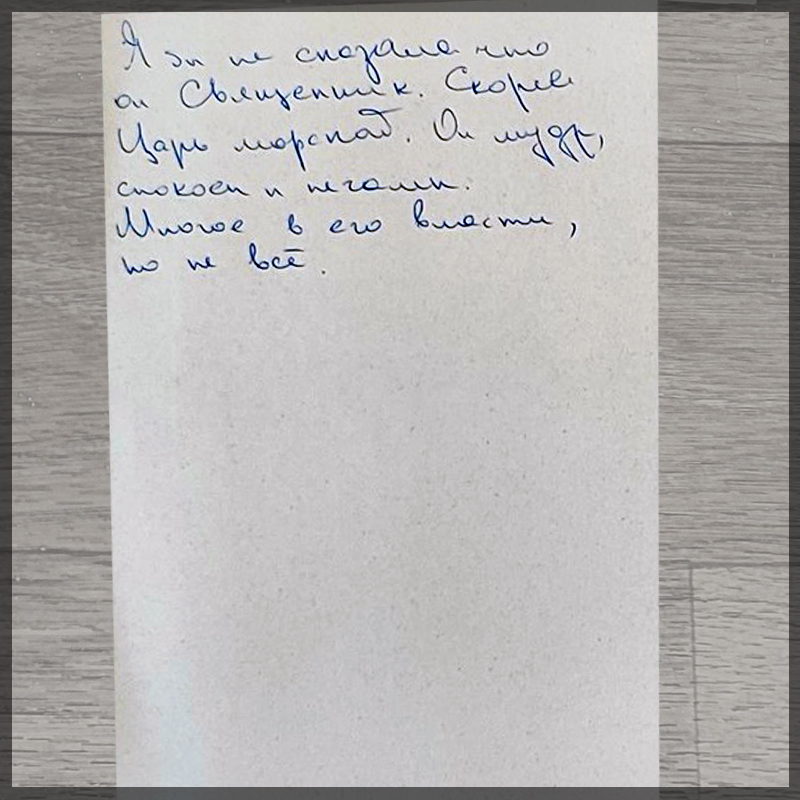 Я бы не сказала что
он Священник. Скорее
Царь морской. Он мудр,
спокоен и печален.
Многое в его власти,
но не всё.